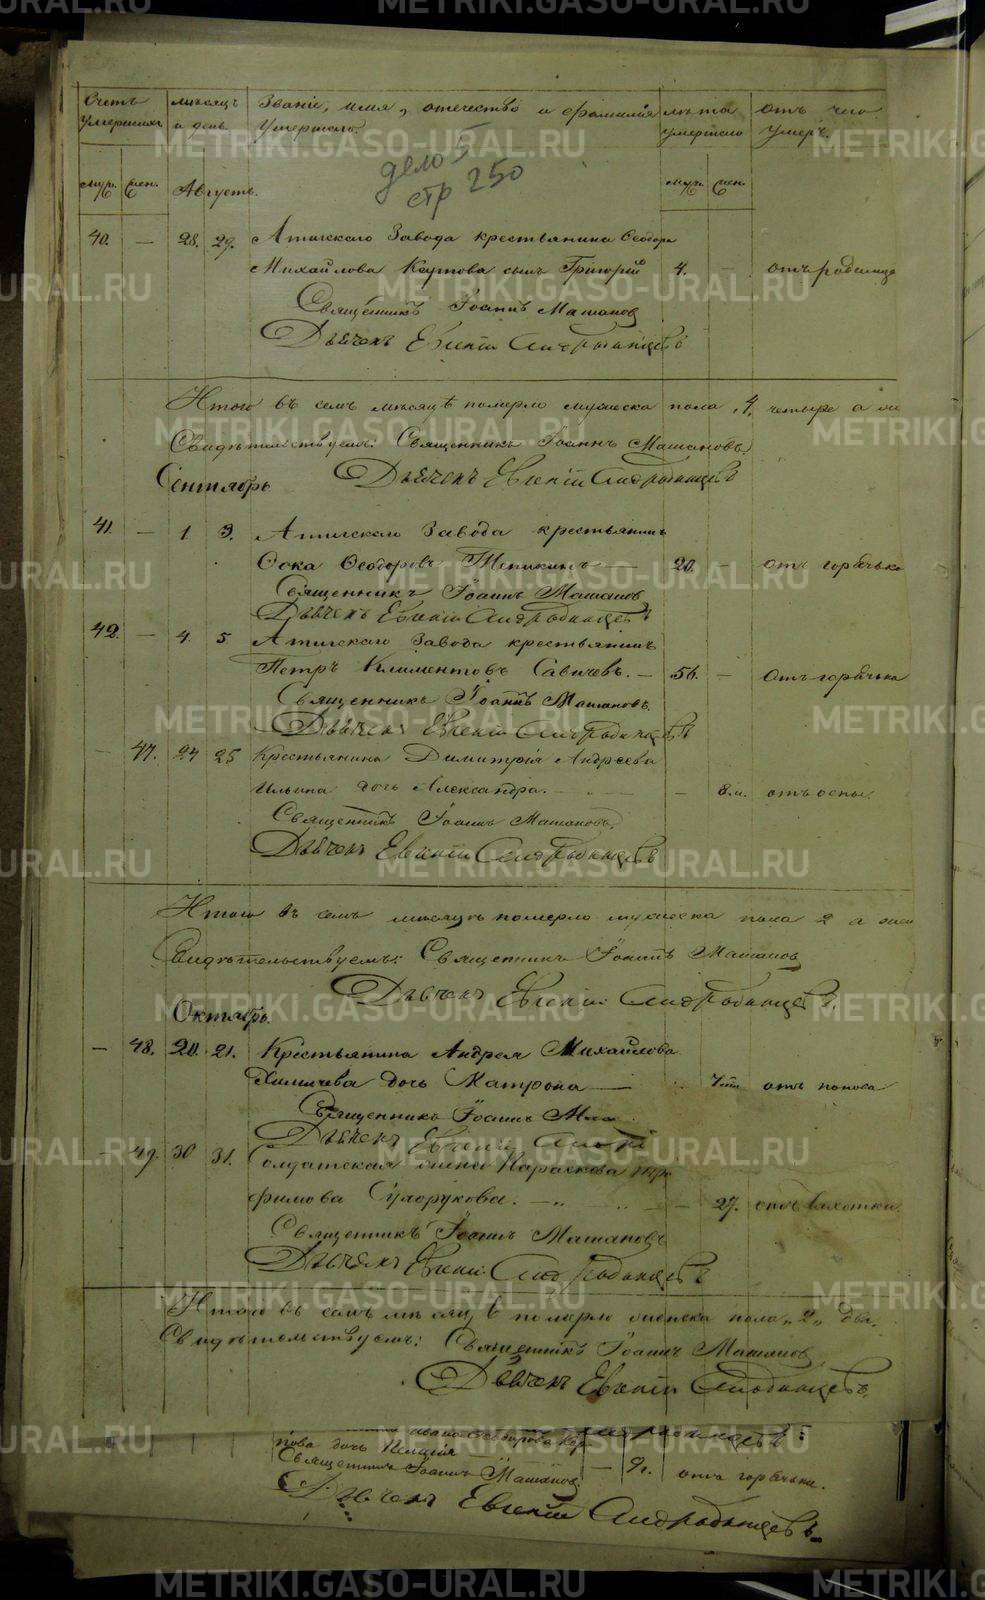 Счетъ умершихъ
мѣсяцъ и день.
Званіе, имя, отечество и фамилія Умершаго.
лѣта умершаго
отъ чего умеръ.
дело 5
стр 250
муж. жен. Августъ. муж. жен.
40. — 28. 29. Атигскаго Завода крестьянина Ѳеодора
Михайлова Каутова сынъ Григорій 4. — отъ родимца
Священникъ Іоаннъ Машановъ
Дьячекъ Евгеній
Итого въ семъ мѣсяцѣ померло мужеска пола „4„ четыре а
Свидѣтельствуемъ: Священникъ Іоаннъ Машановъ
Дьячекъ Евгеній
Сентябрь
41. — 1 3. Атигскаго Завода крестьянинъ
Ѳока Ѳеодоровъ Тепикинъ — 20. — отъ горячьки
Священникъ Іоаннъ Машановъ
Дьячекъ Евгеній
42. — 4. 5 Атигскаго Завода крестьянинъ
Петръ Климентовъ Савичевъ. — 56. — отъ горячьки
Священникъ Іоаннъ Машановъ.
Дьячекъ Евгеній
— 47. 24 25 Крестьянина Димитрія Андреева
Ильина дочь Александра. — — 8 м. отъ оспы.
Священникъ Іоаннъ Машановъ
Дьячекъ Евгеній
Итого въ семъ мѣсяцѣ померло мужеска пола 2 а
Свидѣтельствуемъ: Священникъ Іоаннъ Машановъ
Дьячекъ Евгеній
Октябрь.
— 48. 20. 21. Крестьянина Андрея Михайлова
дочь Матрона — отъ поноса
Священникъ Іоаннъ
Дьячекъ Евгеній
— 49. 30 31. Солдатская жена Параскева Тро
фимова Сухорукова. — 27. отъ чахотки
Священникъ Іоаннъ Машановъ
Дьячекъ Евгеній
Итого въ семъ мѣсяцѣ померло женска пола „2„ два.
Свидѣтельствуемъ: Священникъ Іоаннъ Машановъ
Дьячекъ Евгеній
Ивана Ѳеодорова
дочь Пелагія
Священникъ Іоаннъ Машановъ — 9 г. отъ горячьки.
Дьячекъ Евгеній
METRIKI.GASO-URAL.RU